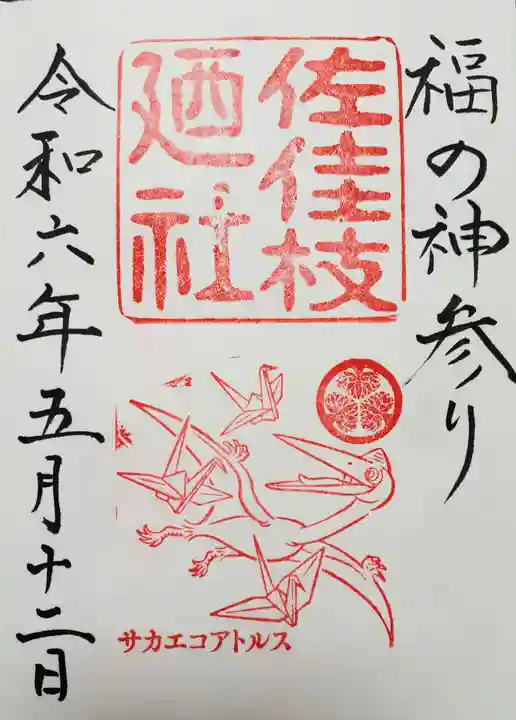 福の神参り
佐佳枝
廼社
サカエコアトルス
令和六年五月十二日